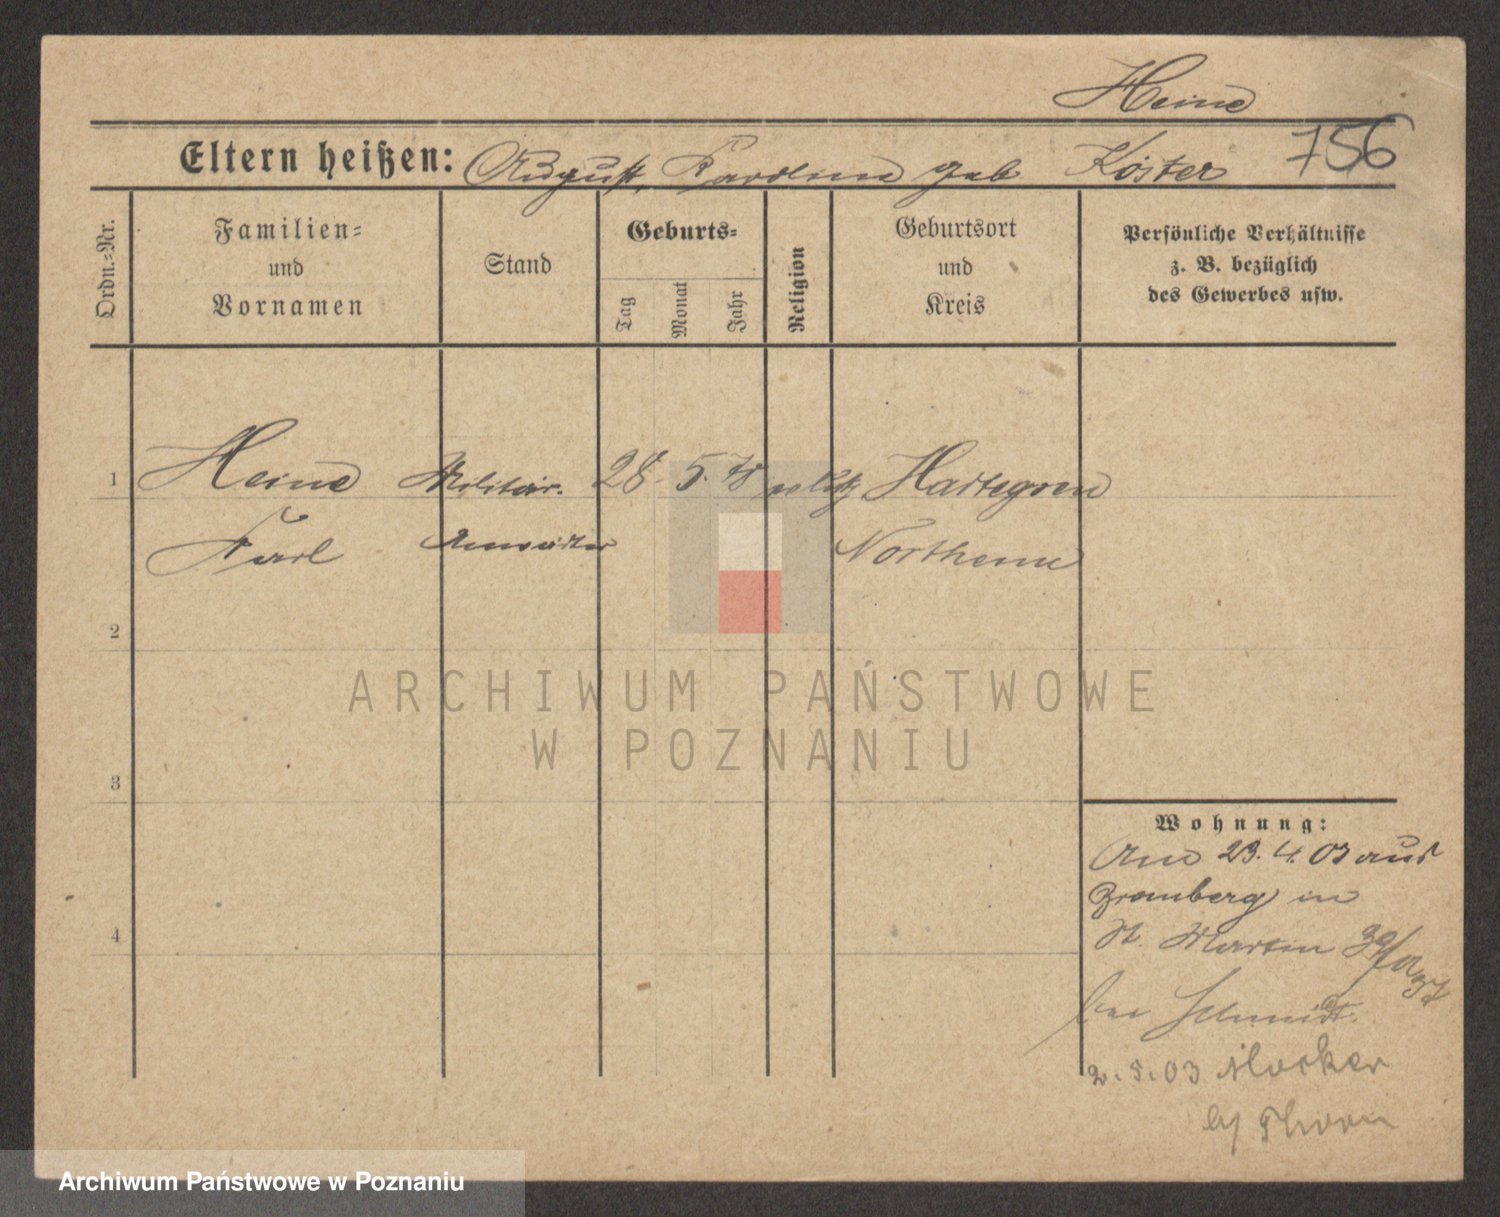 Heine
756
Eltern heißen: August, Karoline geb Köster
Ordn.=Nr.
Familien=
und
Vornamen
Stand
Geburts=
Tag
Monat
Jahr
Religion
Geburtsort
und
Kreis
Persönliche Verhältnisse
z. B. bezüglich
des Gewerbes usw.
1 Heine Militär. 28. 5. 78
Karl Anwärter Northeim
2
3
4
Wohnung:
Am 23. 4. 03 aus
Bromberg in
St. Martin
bei Schmidt.
2. 5. 03 Mocker
b/ Thorn
ARCHIWUM PAŃSTWOWE
W POZNANIU
Archiwum Państwowe w Poznaniu